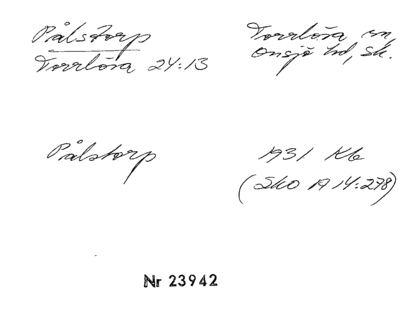 Pålstorp
Torrlösa 24:13
Torrlösa sn,
Onsjö hd, Sk.
Pålstorp
1931 Kb
(Sko A 14:278)
Nr 23942